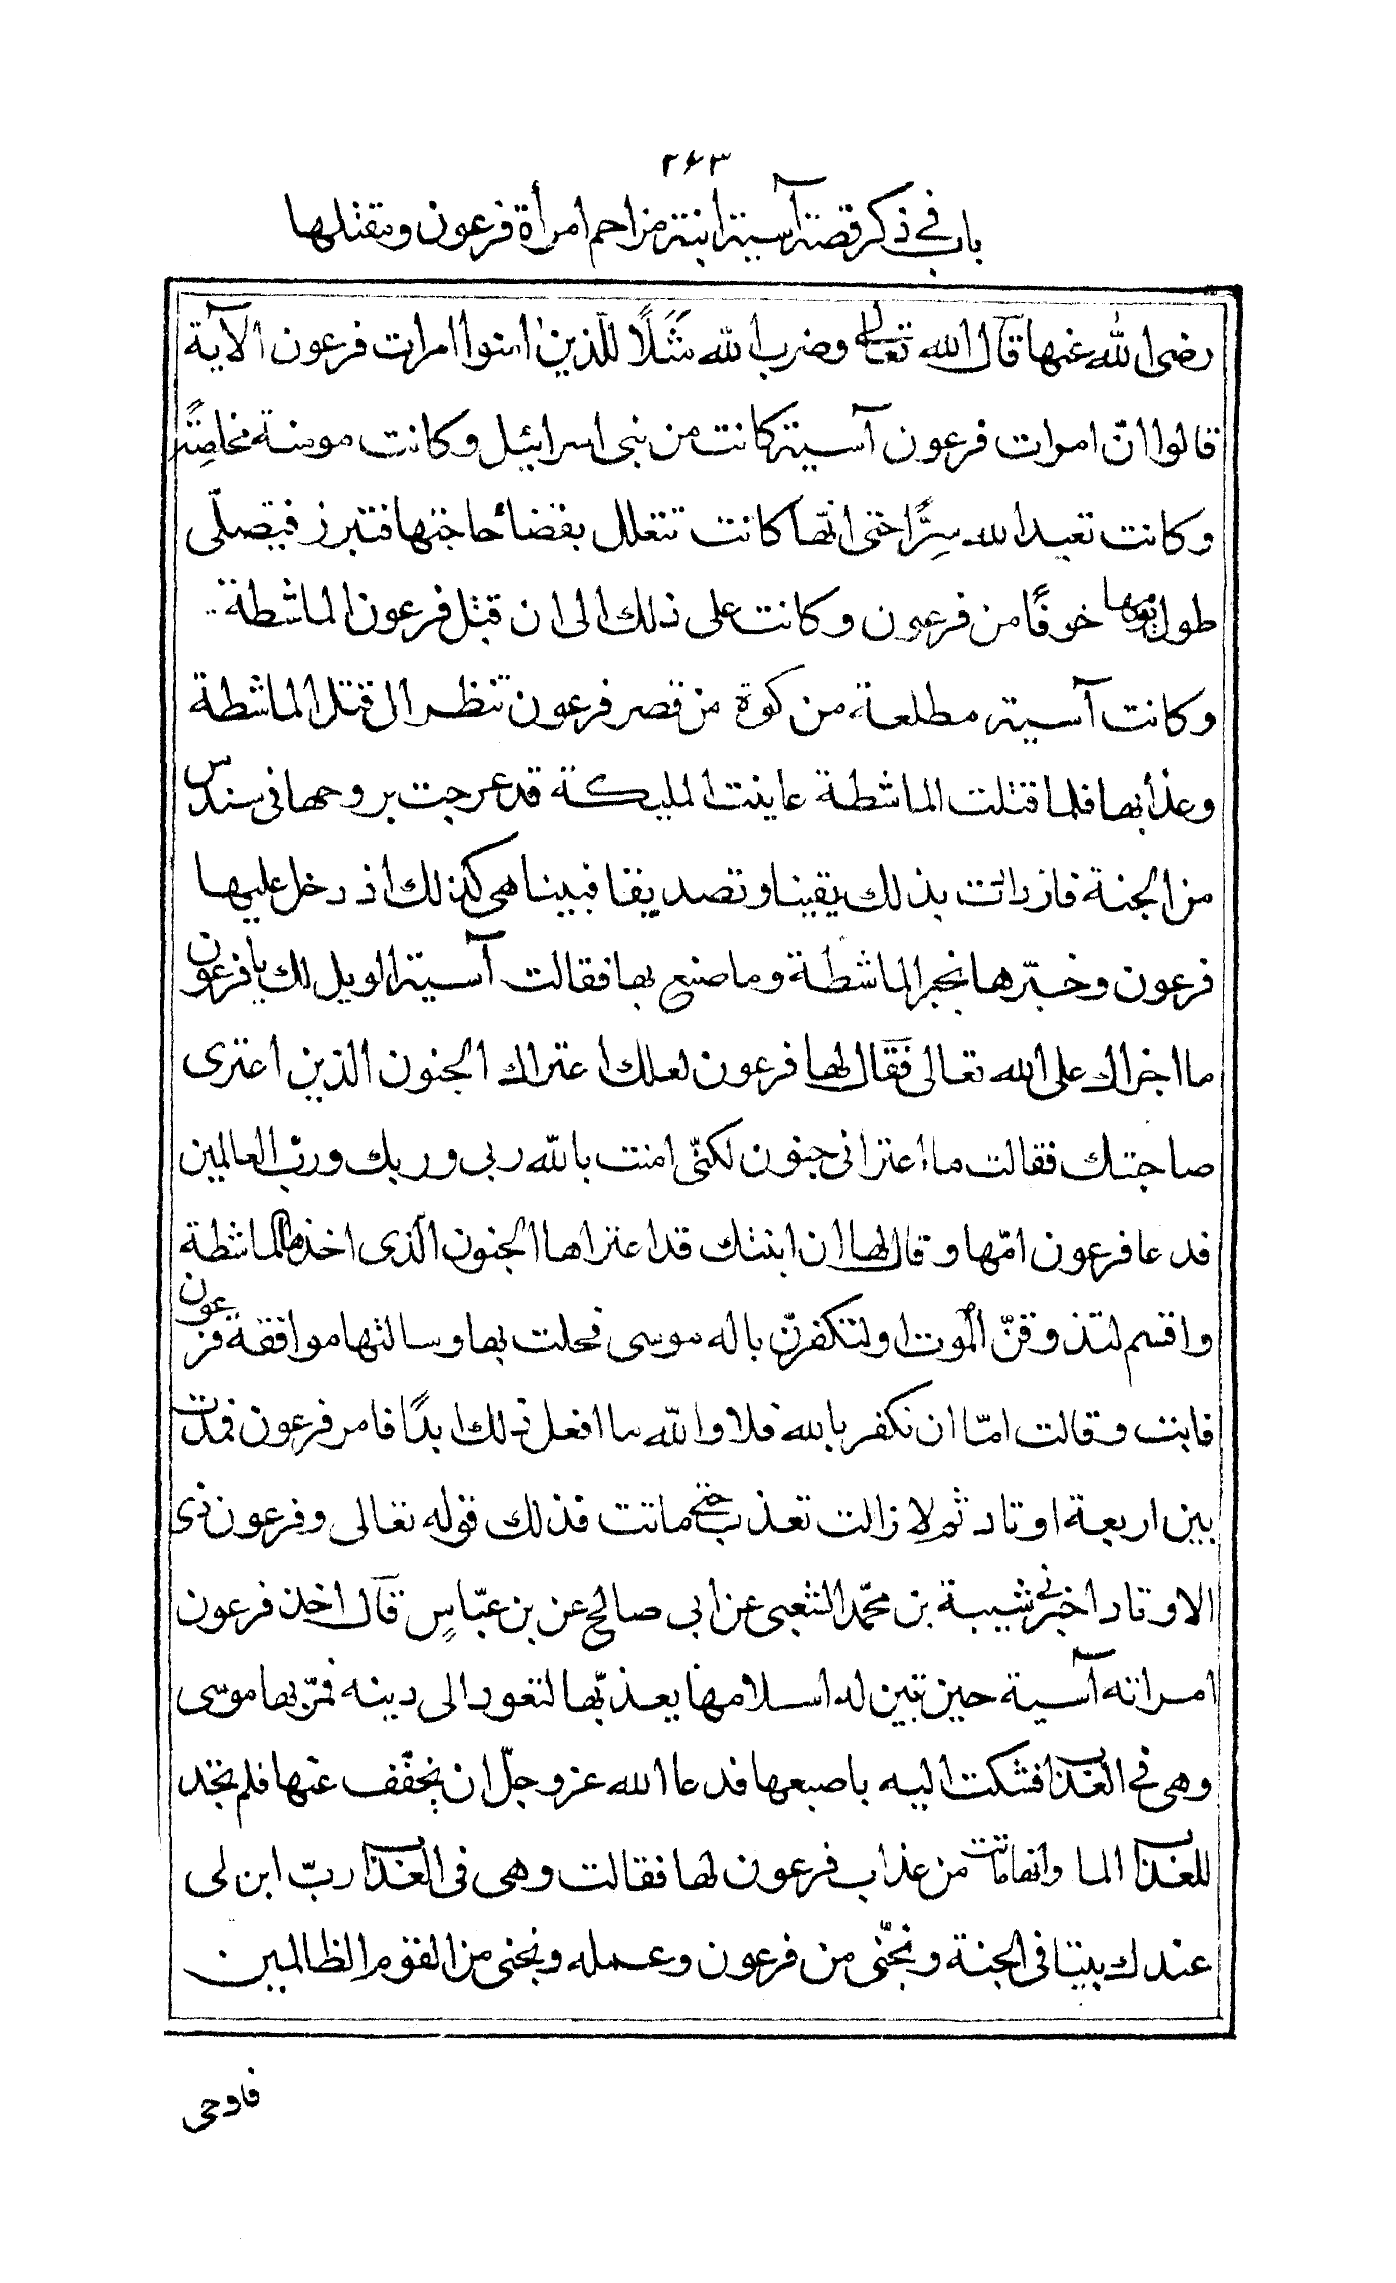 ٢٦٣
باب في ذكر قصة آسية ابنة مزاحم امرأة فرعون ومقتلها
رضى الله عنها قال الله تعالى وضرب الله مثلًا للذين امنوا امرات فرعون الآية
قالوا انّ امرات فرعون آسية كانت من بنى اسرائيل وكانت مومنة مخلصة
وكانت تعبد الله سرًّا حتى انّها كانت تتعلل بقضاء حاجتها فتبرز فتصلّى
طول يومها خوفًا من فرعون وكانت على ذلك الى ان قتل فرعون الماشطة
وكانت آسية مطلعة من كوة من قصر فرعون تنظر الى قتل الماشطة
وعذابها فلما قتلت الماشطة عاينت المليكة قد عرجت بروحها فى سندس
من الجنة فازدادت بذلك يقينا وتصديقا فبينا هى كذلك اذ دخل عليها
فرعون وخبّرها بخبر الماشطة وما صنع بها فقالت آسية الويل لك يا فرعون
ما اجراك على الله تعالى فقال لها فرعون لعلك اعتراك الجنون الذين اعترى
صاحبتك فقالت ما اعترانى جنون لكنّى امنت بالله ربى وربك وربّ العالمين
فدعا فرعون امّها وقال لها ان ابنتك قد اعتراها الجنون الّذى اخذ الماشطة
واقسم لتذوقنّ الموت او لتكفرنّ باله موسى فخلت بها وسالتها موافقة فرعون
فابت وقالت امّا ان نكفر بالله فلا والله ما افعل ذلك ابدًا فامر فرعون فمدت
بين اربعة اوتاد ثم لا زالت تعذب حتى ماتت فذلك قوله تعالى وفرعون ذى
الاوتاد اخبرنى شيبة بن محمّد الشعبى عن ابى صالح عن بن عبّاسٍ قال اخذ فرعون
امراته آسية حين تبين له اسلامها يعذبّها لتعود الى دينه فمرّ بها موسى
وهى في العذاب فشكت اليه باصبعها فدعا الله عز وجلّ ان يخفّف عنها فلم تجد
للعذاب الما وانها ماتت من عذاب فرعون لها فقالت وهى فى العذاب ربّ ابن لى
عندك بيتا فى الجنة ونجّنى من فرعون وعمله ونجنى من القوم الظالمين
فاوحى